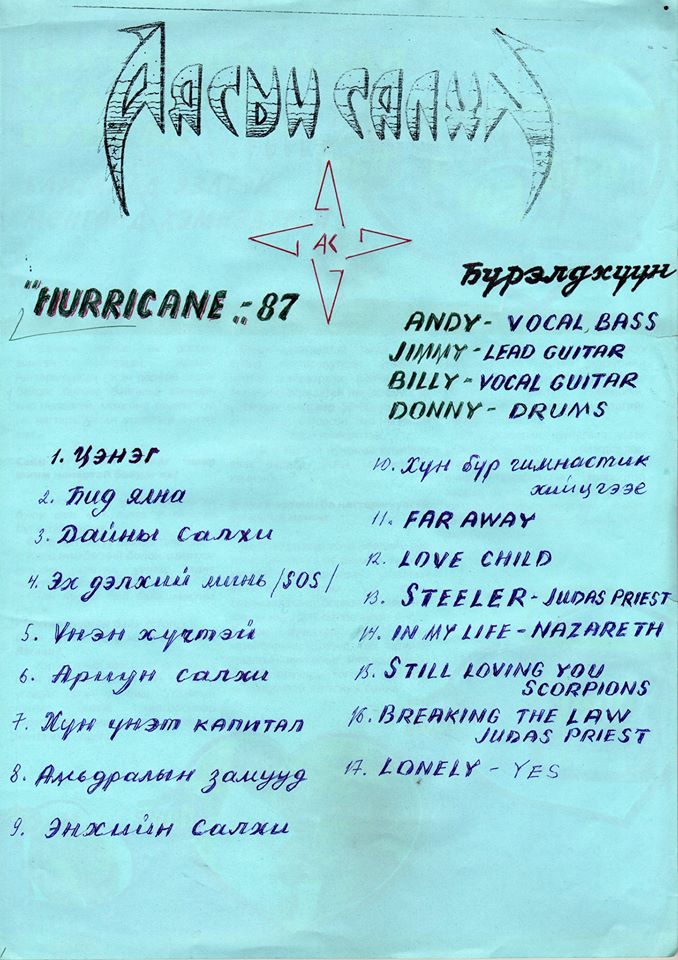 Аясын салхи
АС
Бүрэлдхүүн
"HURRICANE„-87
ANDY - VOCAL, BASS
JIMMY - LEAD GUITAR
BILLY - VOCAL GUITAR
DONNY - DRUMS
1. Цэнэг
2. Бид ялна
3. Дайны салхи
4. Эх дэлхий минь /SOS/
5. Үнэн хүчтэй
6. Ариун салхи
7. Хүн үнэт капитал
8. Амьдралын замууд
9. Энхийн салхи
10. Хүн бүр гимнастик
хийцгээе
11. FAR AWAY
12. LOVE CHILD
13. STEELER - JUDAS PRIEST
14. IN MY LIFE - NAZARETH
15. STILL LOVING YOU
SCORPIONS
16. BREAKING THE LAW
JUDAS PRIEST
17. LONELY - YES